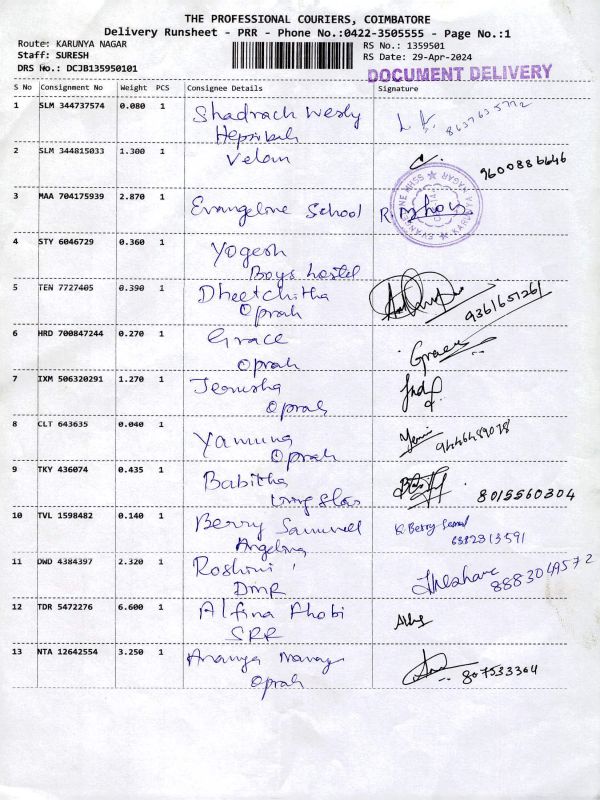 THE PROFESSIONAL COURIERS, COIMBATORE
Delivery Runsheet - PRR - Phone No.:0422-3505555 - Page No.:1
Route: KARUNYA NAGAR
Staff: SURESH
DRS No.: DCJB135950101
RS No.: 1359501
RS Date: 29-Apr-2024
DOCUMENT DELIVERY
S No Consignment No Weight PCS Consignee Details Signature
1 SLM 344737574 0.080 1 Shadrach Wesly
Hepzibah
2 SLM 344815033 1.300 1 Velan 9600886646
3 MAA 704175939 2.870 1 Evangeline School
4 STY 6046729 0.360 1 Yogesh
Boys hostel
5 TEN 7727405 0.390 1 Dheetchitha 9361651261
Oprah
6 HRD 700847244 0.270 1 Grace Grace
Oprah
7 IXM 506320291 1.270 1 Jerusha
Oprah
8 CLT 643635 0.040 1 Yamuna
Oprah
9 TKY 436074 0.435 1 Babitha 8015560304
Living Star
10 TVL 1598482 0.140 1 Berry Samuvel K. Berry Samuel
Angelina 6382313591
11 DWD 4384397 2.320 1 Roshini 8883049572
DMR
12 TDR 5472276 6.600 1 Alfina Phobi
SRR
13 NTA 12642554 3.250 1 Ananya 807533364
Oprah